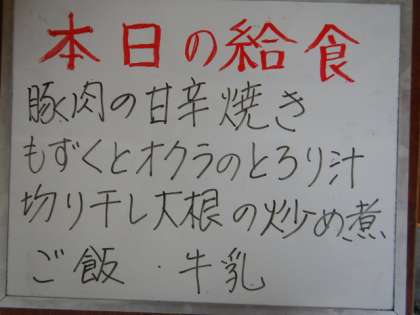 本日の給食
豚肉の甘辛焼き
もずくとオクラのとろり汁
切り干し大根の炒め煮
ご飯・牛乳